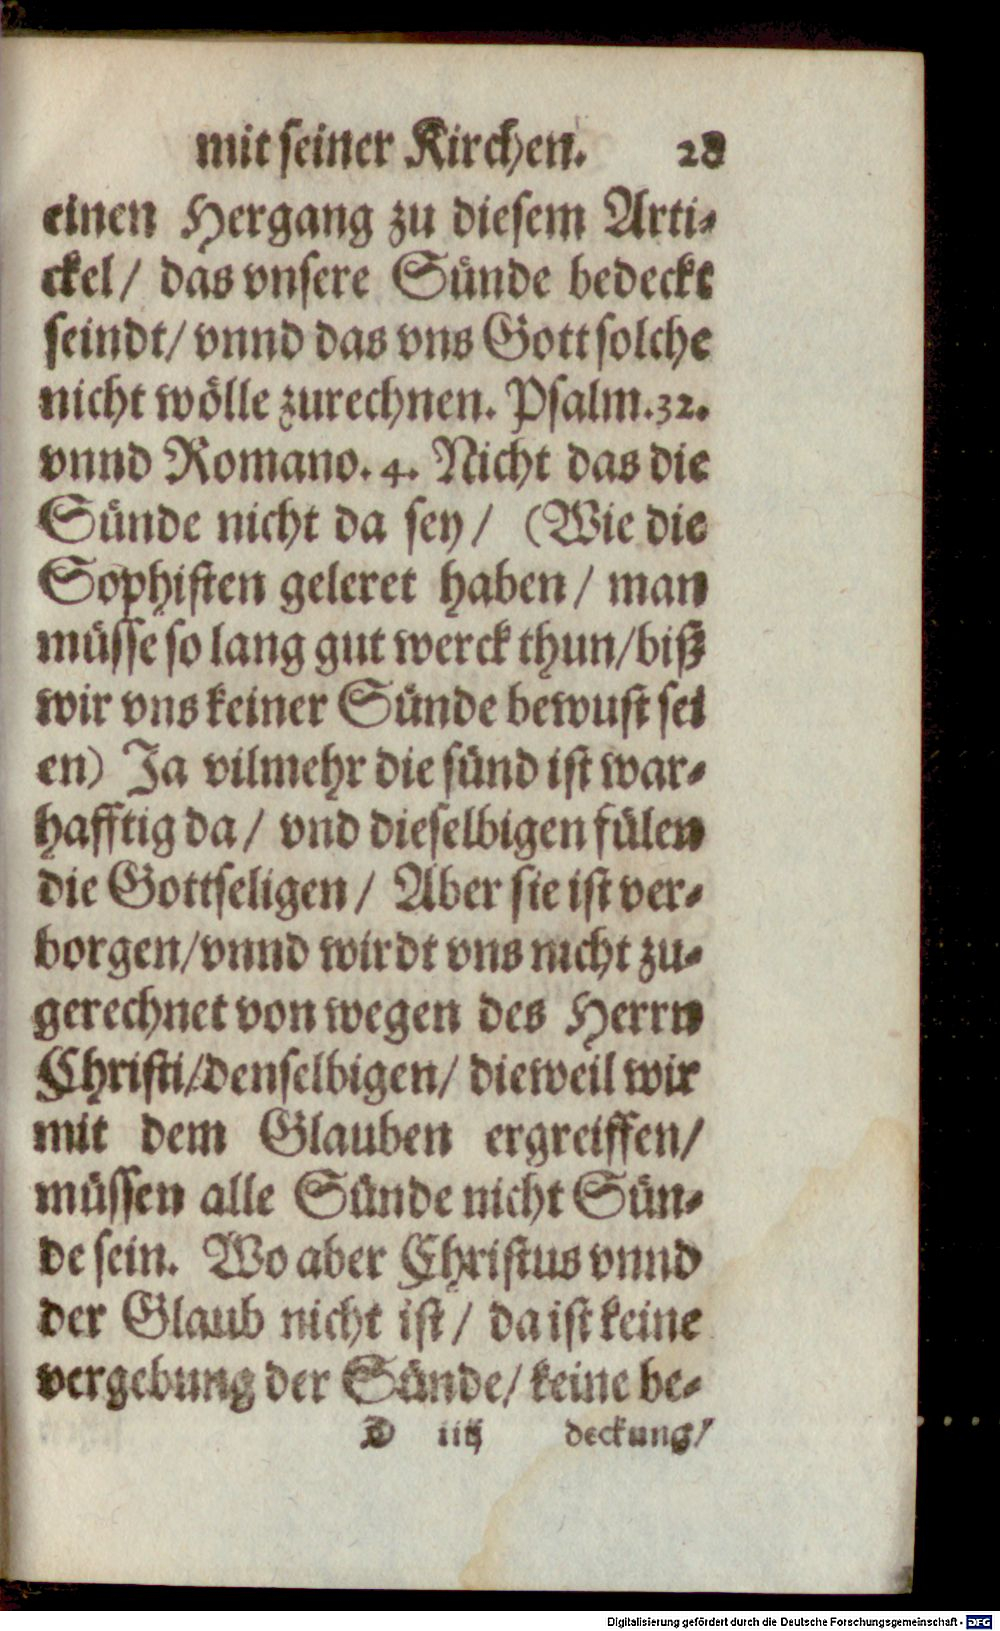 mit seiner Kirchen. 28
einen Hergang zu diesem Arti-
ckel/ das vnsere Sünde bedeckt
seindt/ vnnd das vns Gott solche
nicht wölle zurechnen. Psalm.32.
vnnd Romano. 4. Nicht das die
Sünde nicht da sey/ (Wie die
Sophisten geleret haben/ man
müsse so lang gut werck thun/biß
wir vns keiner Sünde bewust sei
en) Ja vilmehr die sünd ist war-
hafftig da/ vnd dieselbigen fülen
die Gottseligen/ Aber sie ist ver-
borgen/vnnd wirdt vns nicht zu-
gerechnet von wegen des Herrn
Christi/denselbigen/ dieweil wir
mit dem Glauben ergreiffen/
müssen alle Sünde nicht Sün-
de sein. Wo aber Christus vnnd
der Glaub nicht ist/ da ist keine
vergebung der Sünde/ keine be-
D iiij deckung/
Digitalisierung gefördert durch die Deutsche Forschungsgemeinschaft - DFG